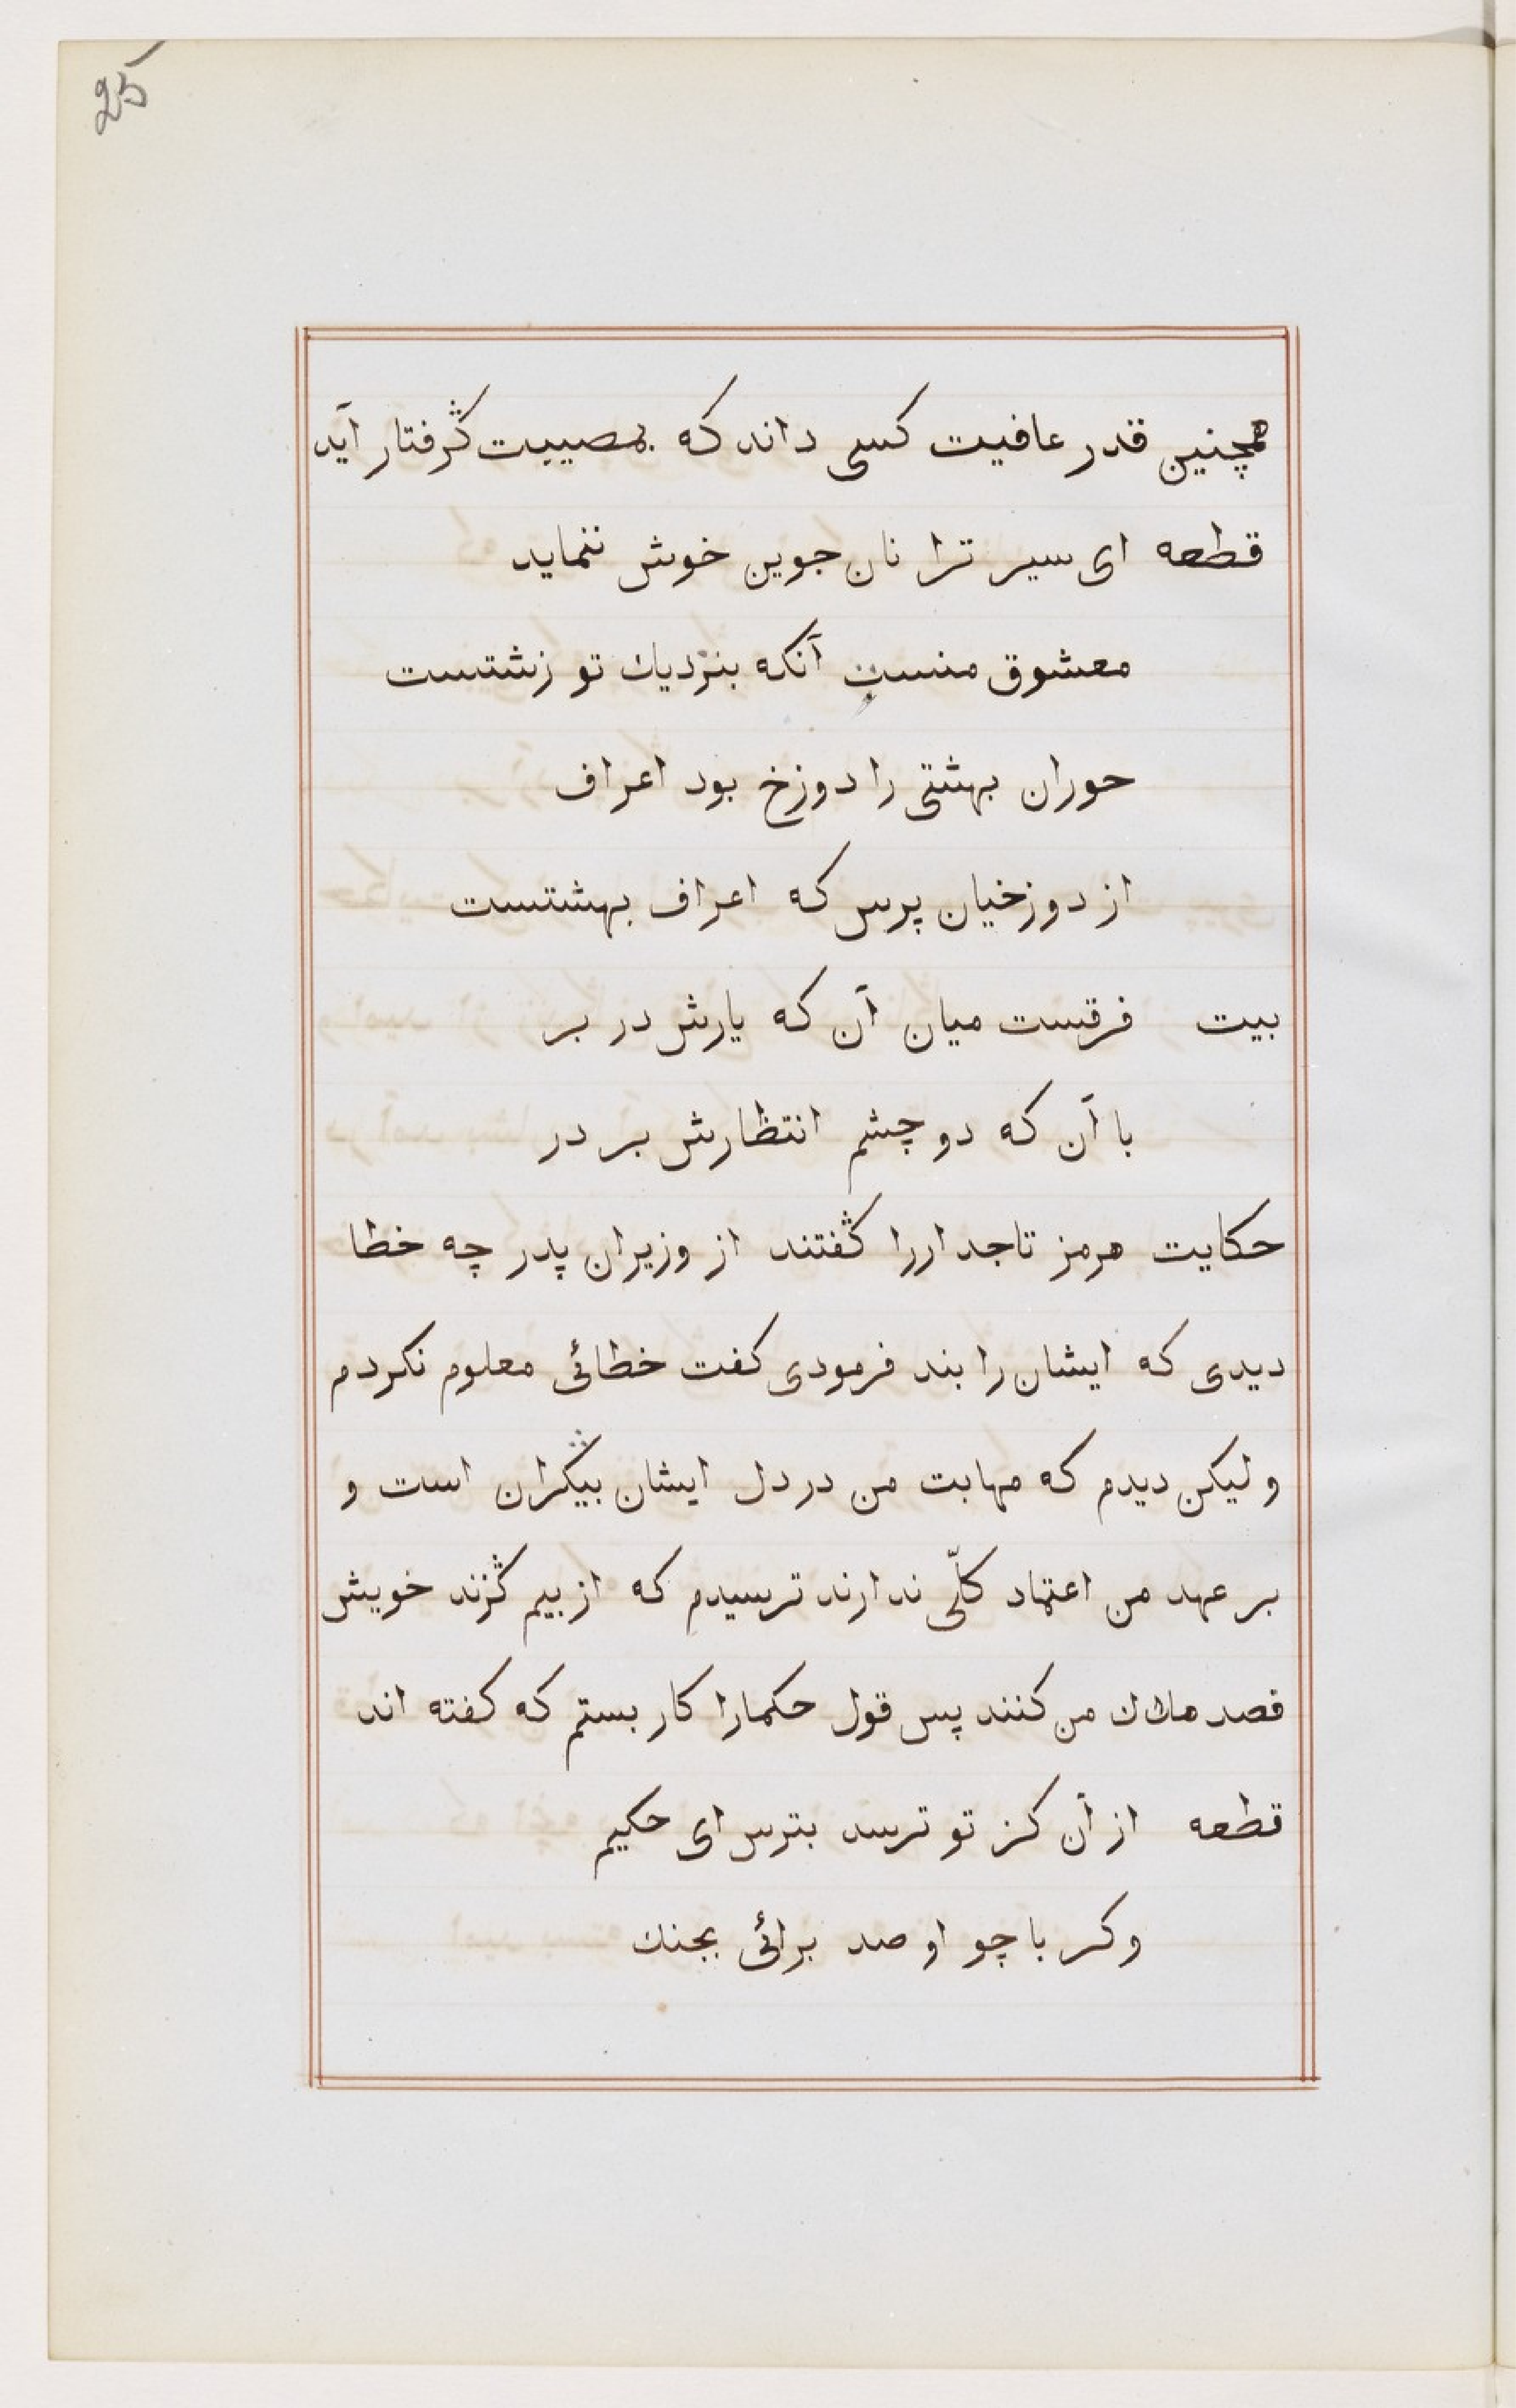 25
همچنین قدر عافیت کسی داند که بمصیبت گرفتار آید
قطعه ای سیر ترا نان جوین خوش ننماید
معشوق منست آنکه بنزدیك تو زشتست
حوران بهشتی را دوزخ بود اعراف
از دوزخیان پرس که اعراف بهشتست
بیت فرقست میان آن که یارش در بر
با آن که دو چشم انتظارش بر در
حکایت هرمز تاجدار را گفتند از وزیران پدر چه خطا
دیدی که ایشان را بند فرمودی کفت خطائی معلوم نکردم
و لیکن دیدم که مهابت من در دل ایشان بیگران است و
بر عهد من اعتماد کلّی ندارند ترسیدم که از بیم گزند خویش
قصد هلاك من کنند پس قول حکمارا کار بستم که کفته اند
قطعه از آن کز تو ترسد بترس ای حکیم
وکر با چو او صد برائی بجنك